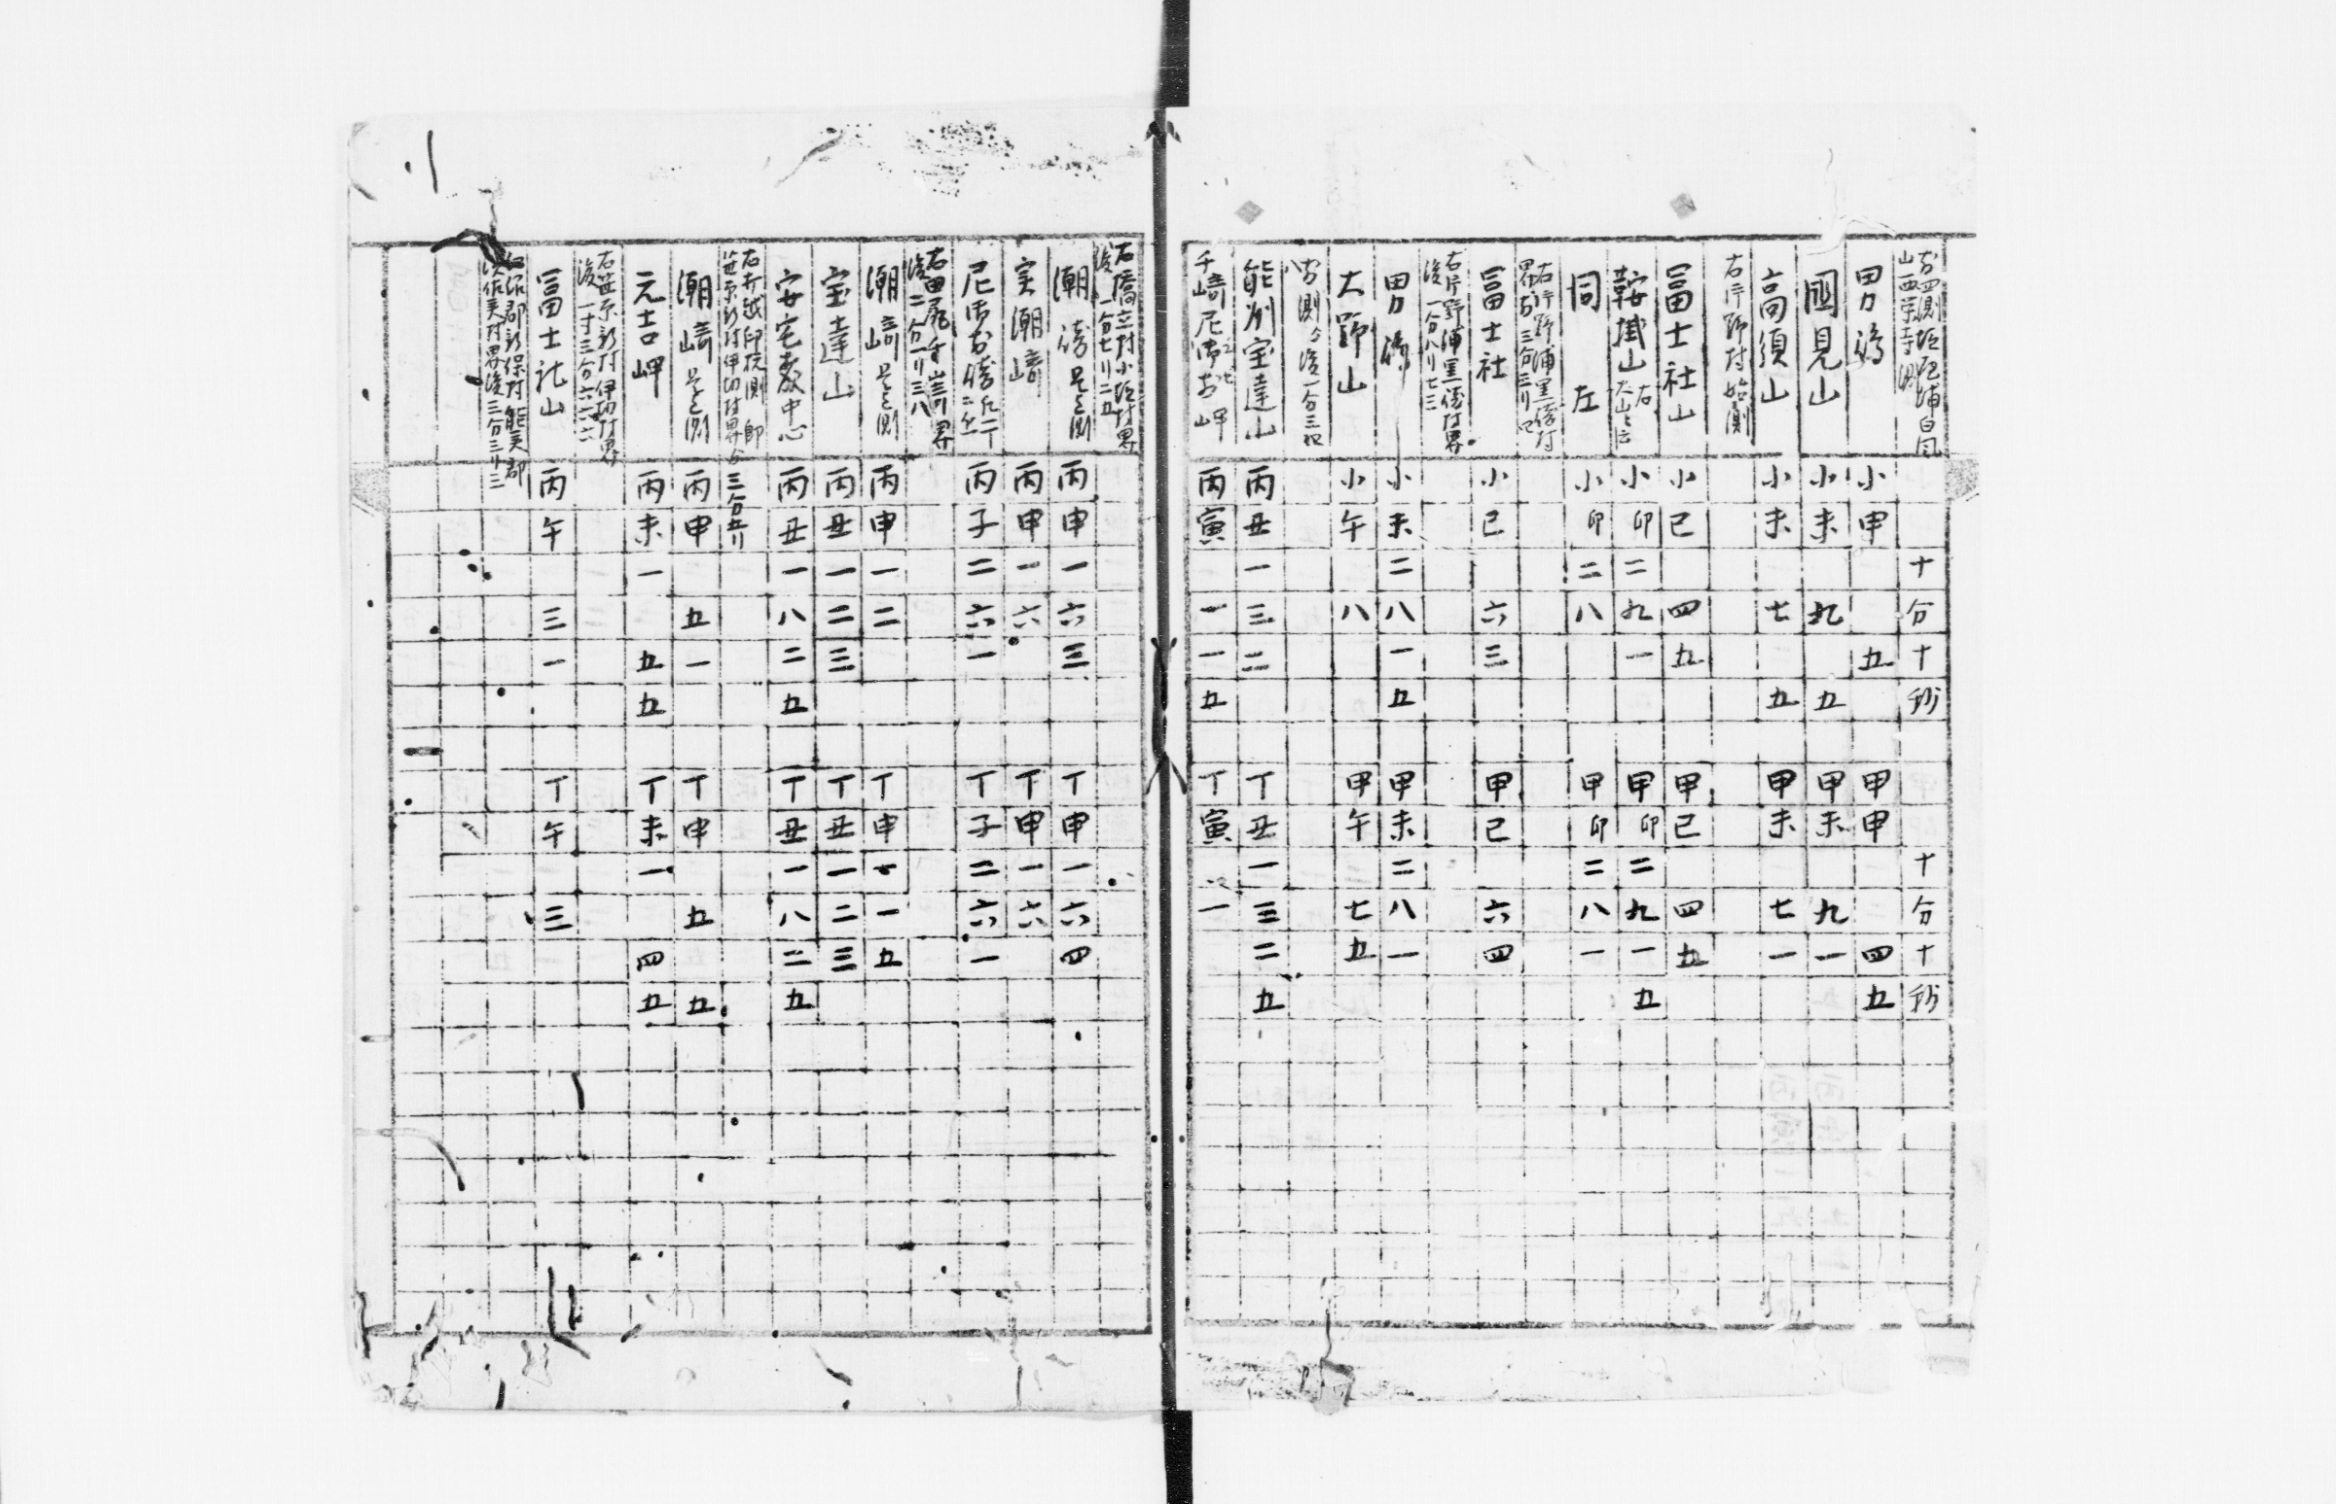 十 分 十 秒 十 分 十 秒
男嶋 小 申 五 甲 申 四 五
國見山 小 未 九 五 甲 未 九 一
高須山 小 未 七 五 甲 未 七 一
右片野村始測
冨士社山 小 巳 四 五 甲 巳 四 五
鞍掛山 右 大山と云 小 卯 二 九 一 甲 卯 二 九 一 五
同 左 小 卯 二 八 甲 卯 二 八 一
右片野浦黒 村
界 三分三リ
冨士社 小 巳 六 三 甲 巳 六 四
右片野浦黒 村界
後一分八リ七三
男嶋 小 未 二 八 一 五 甲 未 二 八 一
大野山 小 午 八 甲 午 七 五
測 後一分三
能州宝達山 丙 丑 一 三 二 丁 丑 一 三 二 五
千崎尼 岬 丙 寅 一 一 五 丁 寅 一
右橋立村小塩村界
後一分七リ二五
潮 測 丙 申 一 六 三 丁 申 一 六 四
実潮崎 丙 申 一 六 丁 申 一 六
尼 丙 子 二 六 一 丁 子 二 六 一
右田尻 千崎界
後二分一リ三八
潮崎 測 丙 申 一 二 丁 申 一 一 五
宝達山 丙 丑 一 二 三 丁 丑 一 二 三
安宅森中心 丙 丑 一 八 二 五 丁 丑 一 八 二 五
右 越 測 即
笹原新村伊切村界 三分五リ
潮崎 測 丙 申 五 一 丁 申 五 五
元吉岬 丙 未 一 五 五 丁 未 一 四 五
右笹原新村伊切村界
後一寸三分六 六
冨士社山 丙 午 三 一 丁 午 三
江沼郡新保村能美郡
佐美村界後三分三リ三